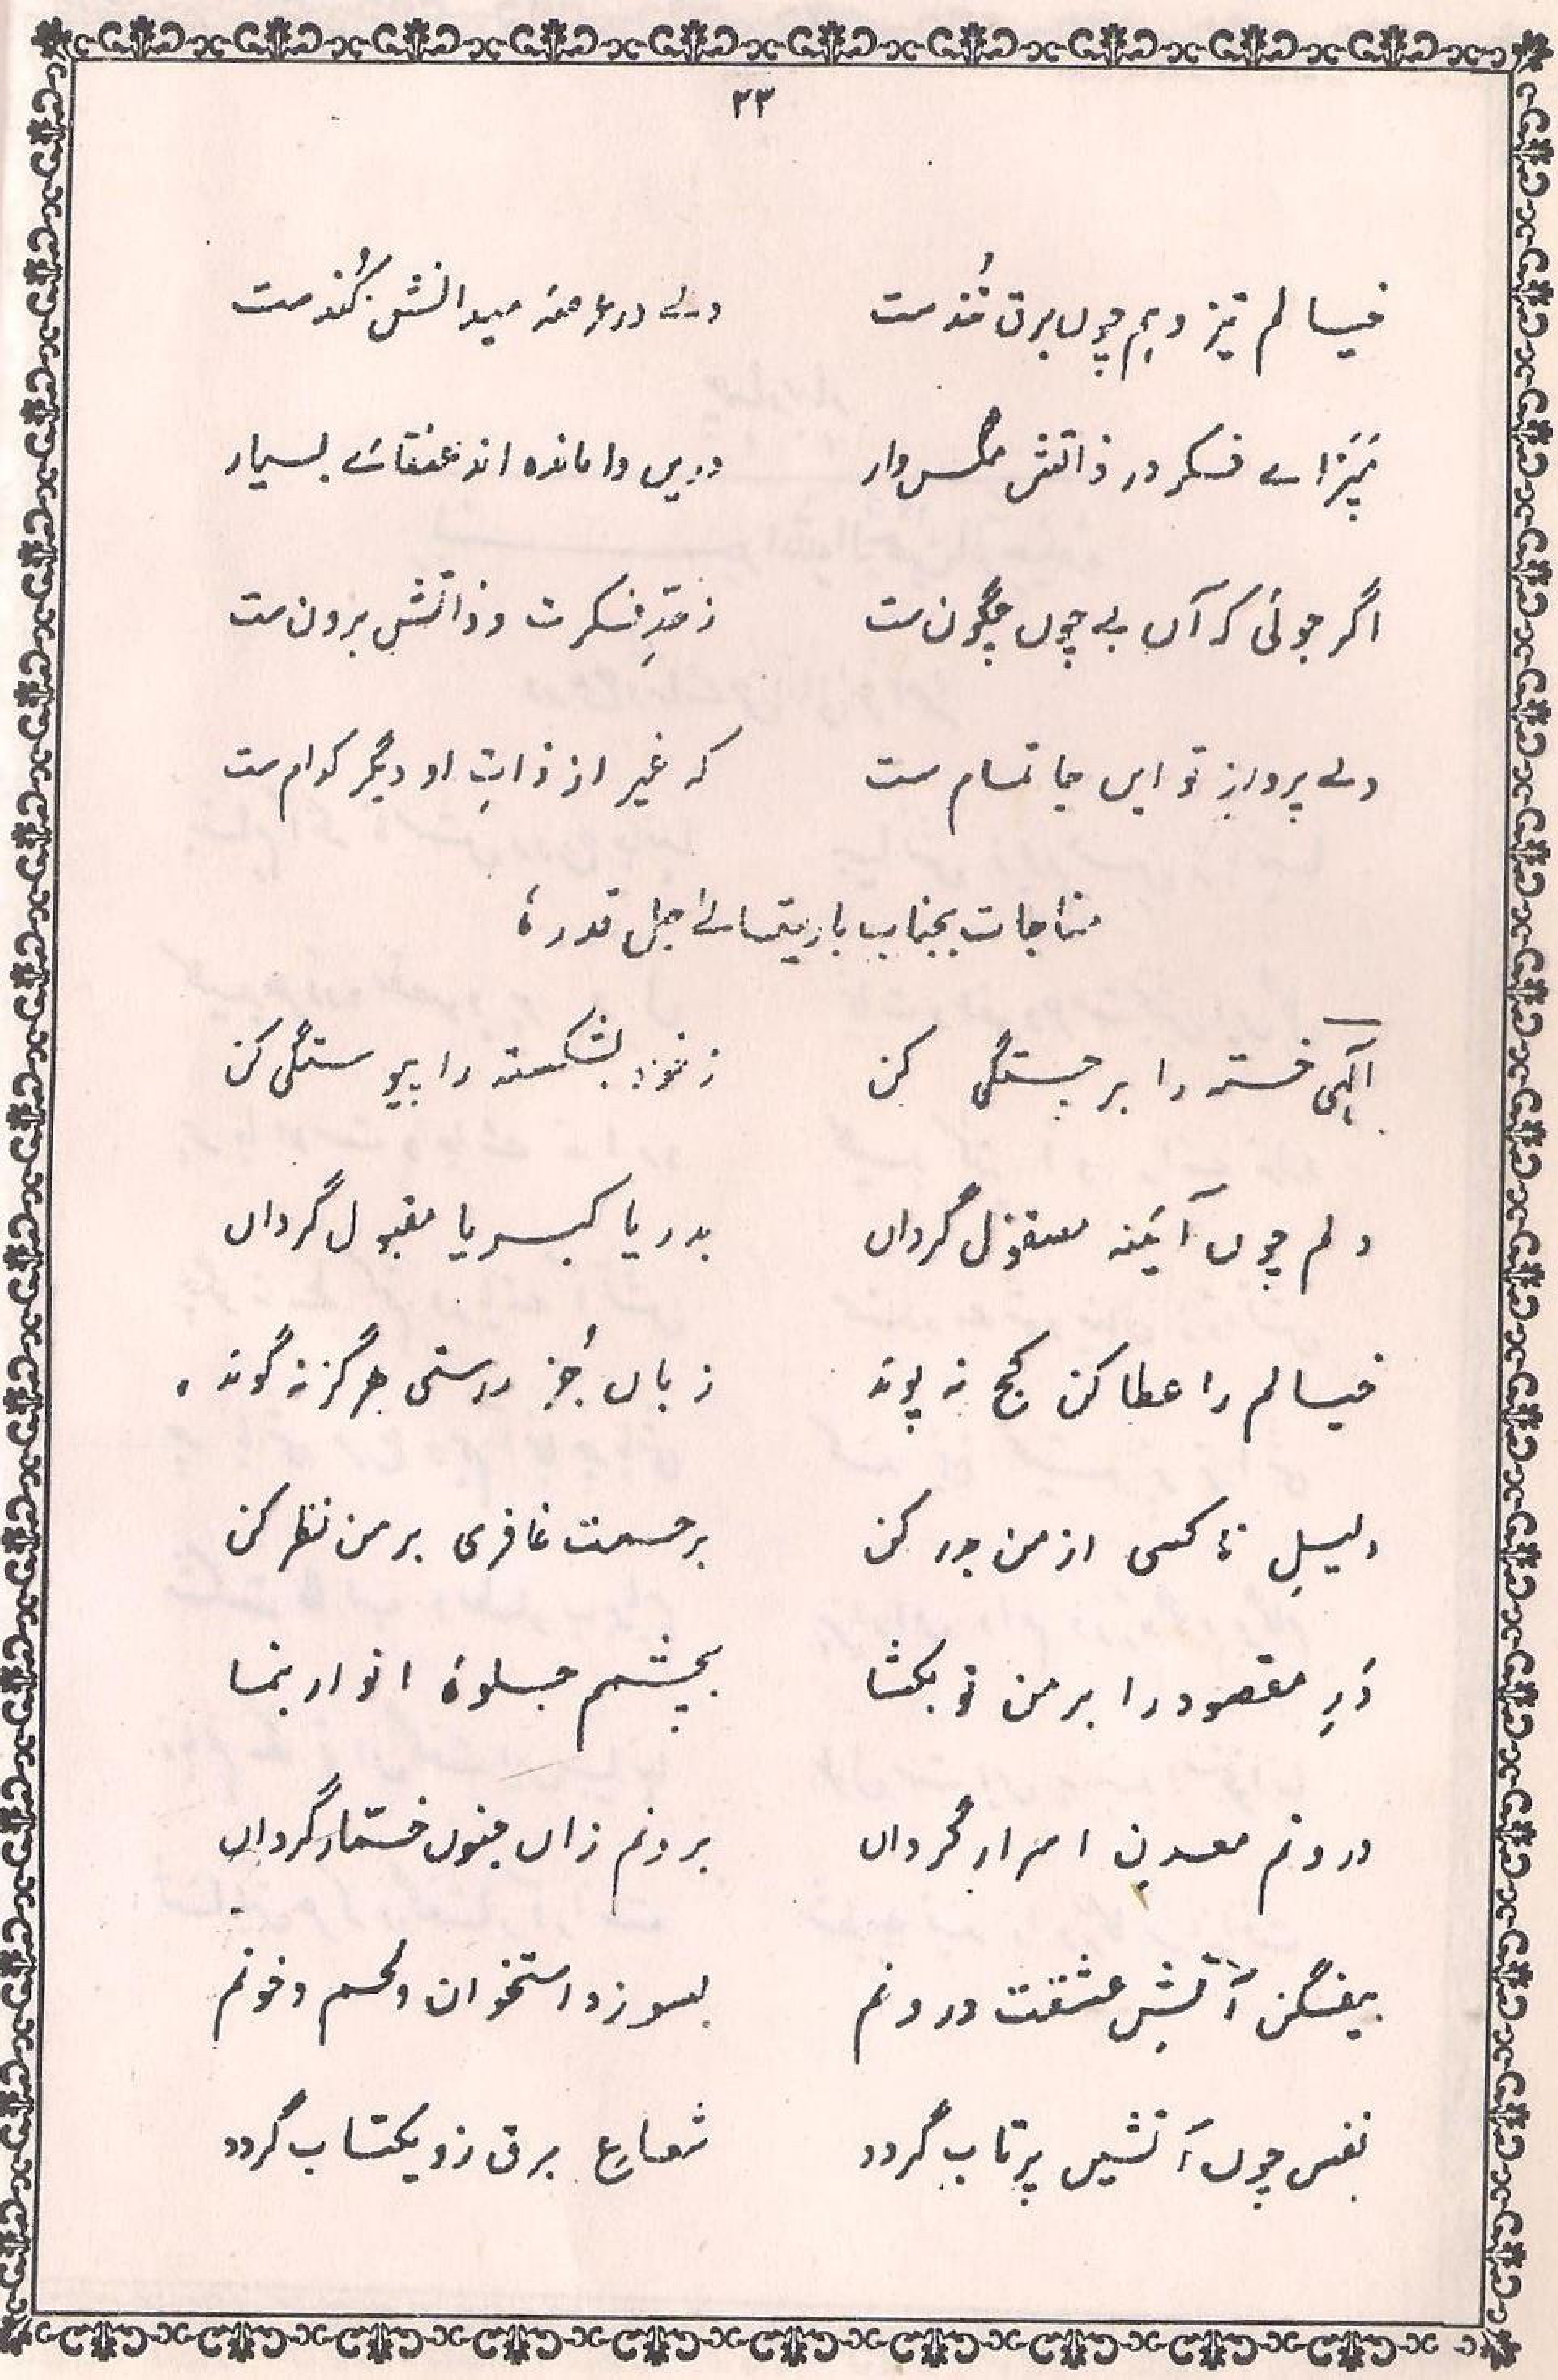 ۳۳
خیالم تیز وہم چوں برق تُند ست ولے در عرصۂ میدانش کُند ست
مَپَر اے فکر در ذاتش مگس وار دریں واماندہ اند عنقائے بسیار
اگر جوئی کہ آں بے چوں چگون ست ز حدِّ فکرت و ذاتش برون ست
ولے پروازِ تو ایں جا تمام ست کہ غیر از ذاتِ او دیگر کدام ست
مناجات بجناب باریتعالےٰ جل قدرہٗ
الٰہی خستہ را برجستگی کن ز خود بشکستہ را پیوستگی کن
دلم چوں آئینہ مصقول گرداں بدریا کبریا مقبول گرداں
خیالم را عطا کن کج نہ پوئد زباں جُز راستی ہرگز نہ گوئد
دلیلِ ناکسی از من بدر کن برحمت غافری بر من نظر کن
دَرِ مقصود را بر من تو بکشا بچشمم جلوۂ انوار بنما
درونم معدنِ اسرار گرداں برونم زاں جنوں گرداں
بیفگن آتشِ عشقت درونم بسوزد استخوان و لحم و خونم
نفس چوں آتشیں پرتاب گردد شعاعِ برق زو یکتاب گردد